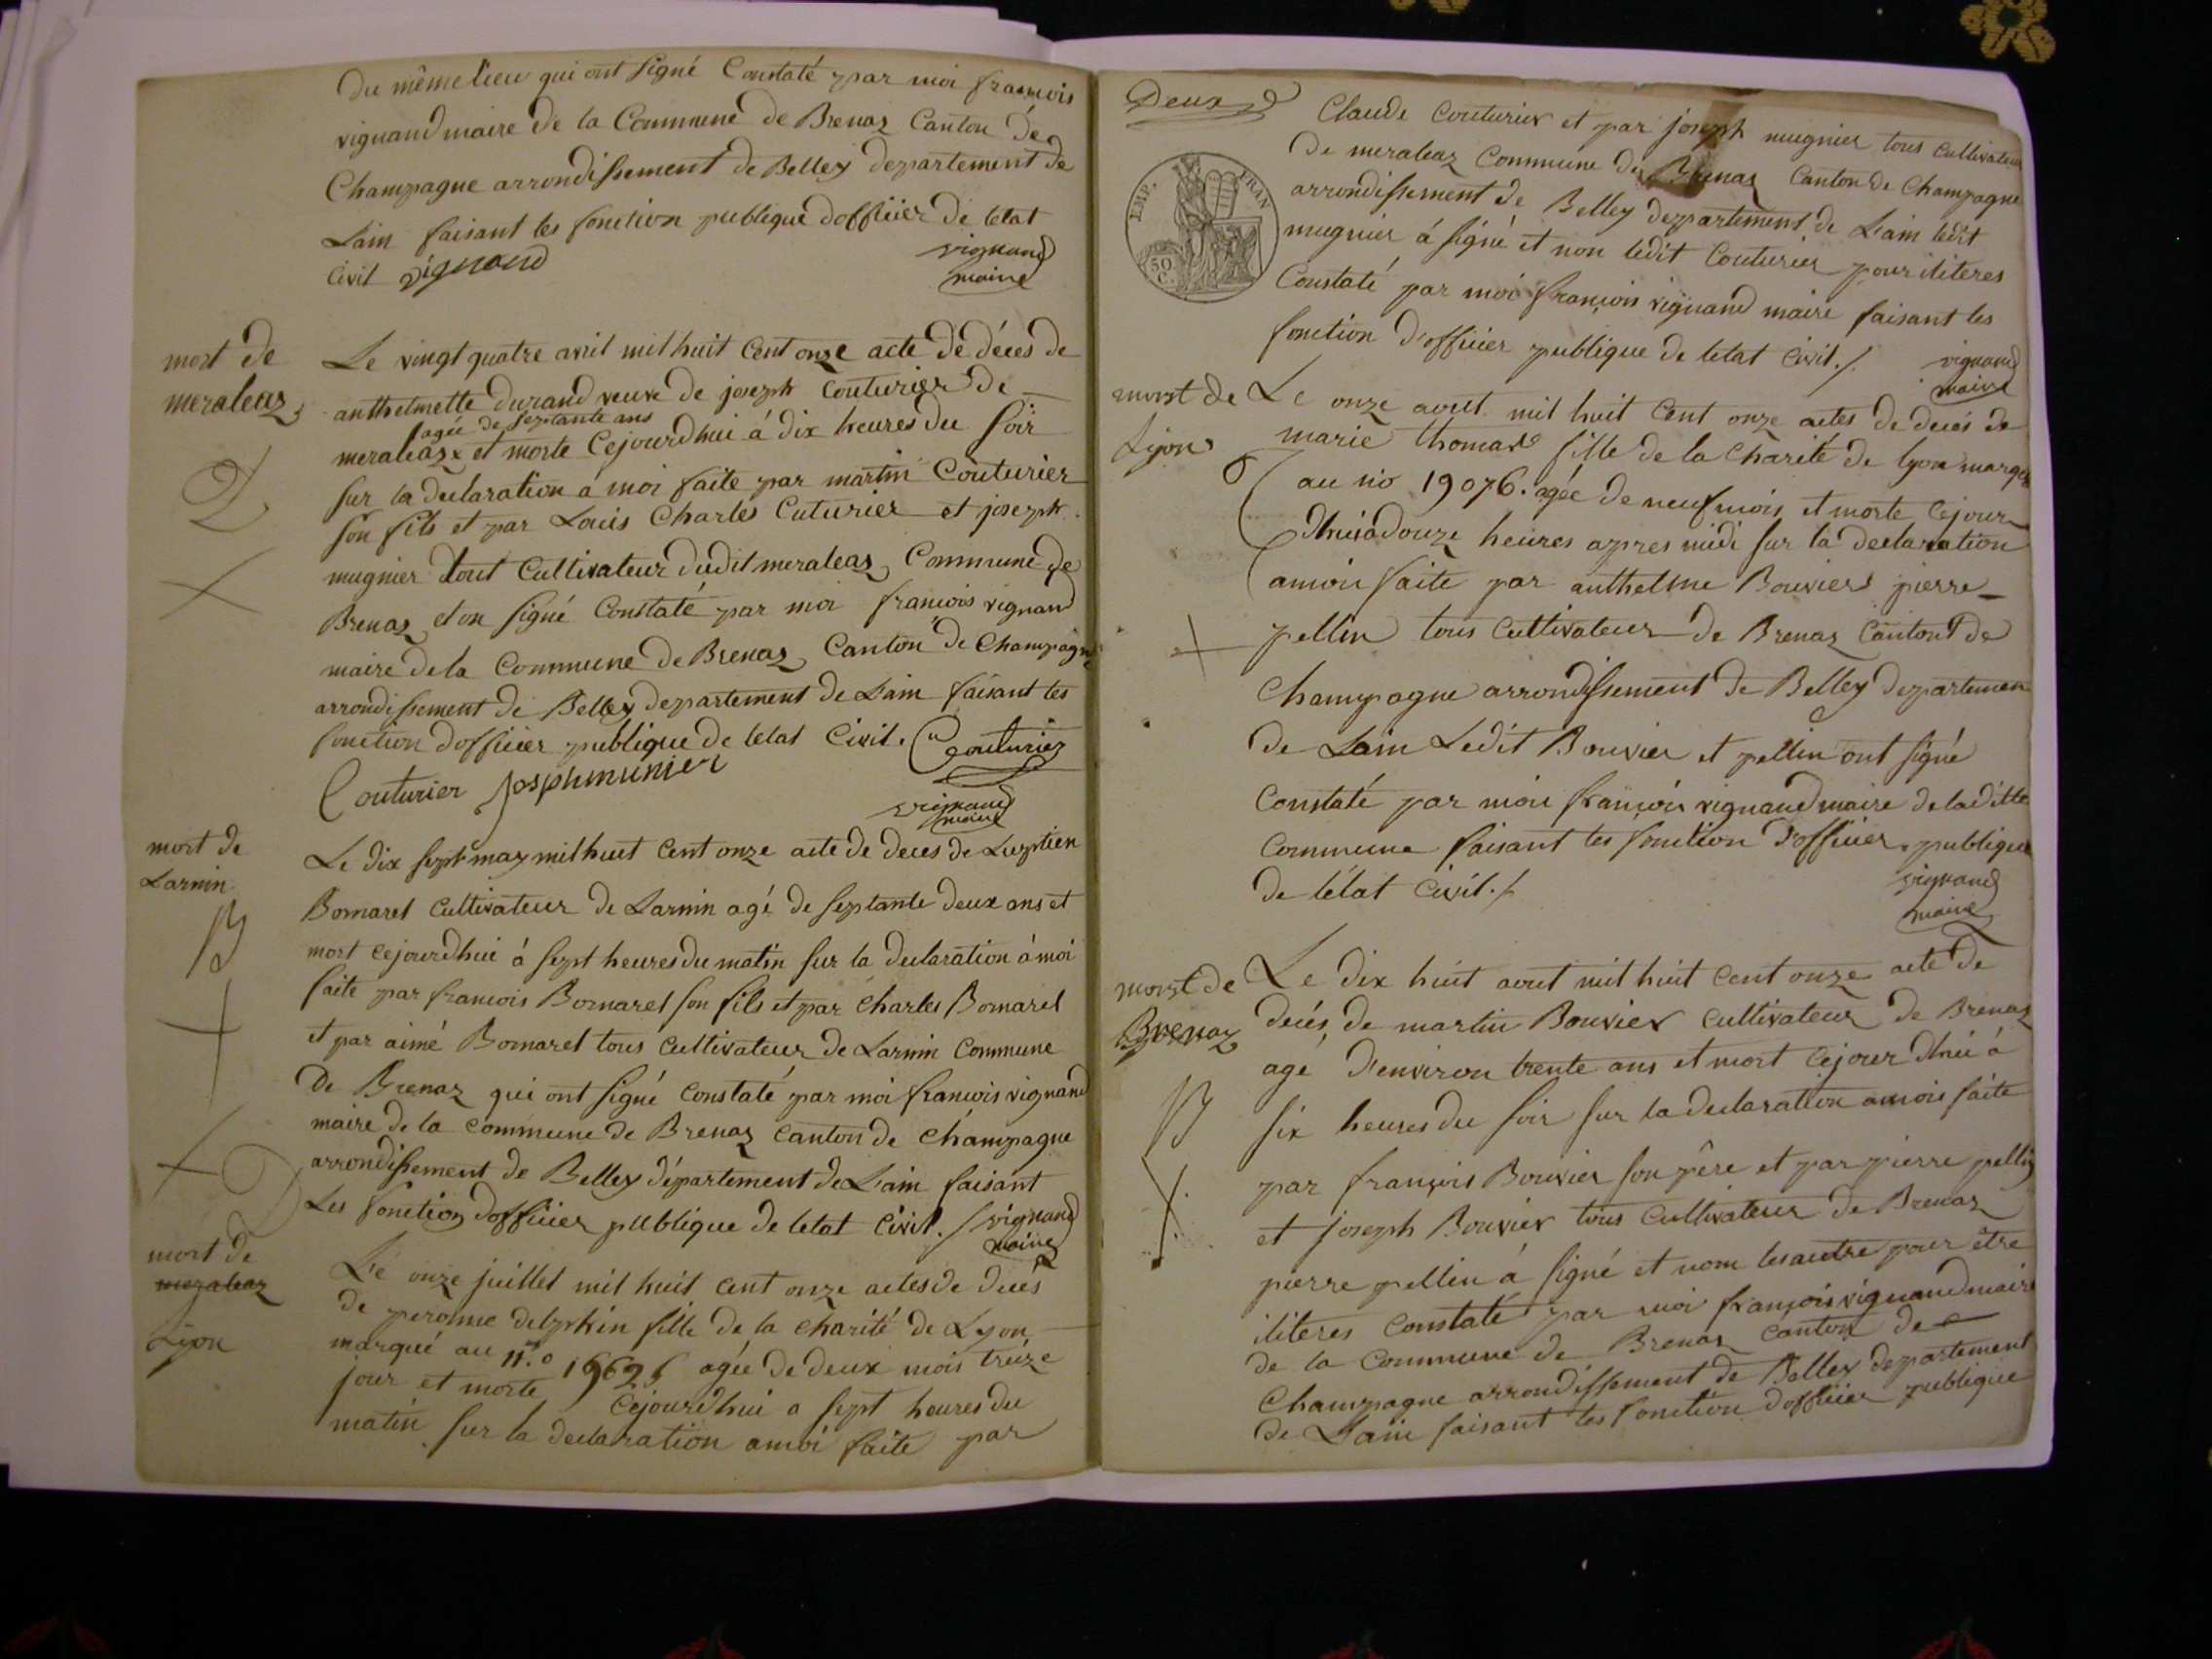 du même lieu qui ont signé Constaté par moi francois
vignand maire de la Commune de Brenaz Canton de
Champagne arrondissement de Belley departement de
Lain faisant les fonction publique dofficier de letat
Civil vignand
vignand
maire
mort de
meraleaz
Le vingt quatre avril mil huit Cent onze acte de déces de
anthelmette durand veuve de joseph Couturier de
agée de septante ans
meraleaz x et morte Cejourdhui á dix heures du soir
sur la declaration á moi faite par martin Couturier
son fils et par Louis Charles Cuturier et joseph
mugnier tout Cultivateur dudit meraleaz Commune de
Brenaz et on signé Constaté par moi francois vignand
maire de la Commune de Brenaz Canton de Champagne
arrondissement de Belley departement de Lain faisant les
fonction dofficier publique de letat Civil. Couturier
Couturier Josphmunier
vignand
maire
mort de
Larnin
Le dix sept may mil huit Cent onze acte de deces de
Bornarel Cultivateur de Larnin agé de septante deux ans et
mort cejourdhui á sept heures du matin sur la declaration á moi
faite par francois Bornarel son fils et par Charles Bornarel
et par aimé Bornarel tous Cultivateur de Larnin Commune
De Brenaz qui ont signé constaté par moi francois vignand
maire de la commune de Brenaz canton de champagne
arrondissement de Belley département de Lain faisant
Les fonction dofficier publique de letat civil. / vignand
maire
mort de
meraleaz
Lyon
Le onze juillet mil huit cent onze actes de décés
de peronne delphin fille de la charité de Lyon
marqué au n.o agée de deux mois treize
jour et morte Cejourdhui a sept heures du
matin sur la declaration amoi faite par
Deux
EMP. FRAN
50
C.
Claude Couturier et par joseph mugnier tous Cultivateur
de meraleaz Commune de Brenaz Canton de Champagne
arrondissement de Belley departement de Lain ledit
mugnier á signé et non ledit Couturier pour iliteres
Constaté par moi françois vignand maire faisant les
fonction d'officier publique de letat civil./.
vignand
maire
mort de
Lyon
Le onze aout mil huit Cent onze actes de decés de
marie thomas fille de la Charité de lyon marqué
au no 19076. agée de neuf mois et morte Cejour
dhui a douze heures apres midi sur la declaration
amoi faite par anthelme Bouvier pierre
pellin tous Cultivateur de Brenaz Canton de
Champagne arrondissement de Belley departemen
de Lain Ledit Bouvier et pellin ont signé
Constaté par moi françois vignand maire de la ditte
Commune faisant les fonction d'officier publique
de l'état Civil./.
vignand
maire
mort de
Brenaz
Le dix huit aout mil huit Cent onze acte de
decés de martin Bouvier Cultivateur de Brenaz
agé d'environ trente ans et mort cejour dhui á
six heures du soir sur la declaration amoi faite
par françois Bouvier son père et par pierre pellin
et joseph Bouvier tous Cultivateur de Brenaz
pierre pellin á signé et nom les autre pour être
iliteres Constaté par moi françois vignand maire
de la Commune de Brenaz Canton de
Champagne arrondissement de Belley departement
de Lain faisant les fonction dofficier publique